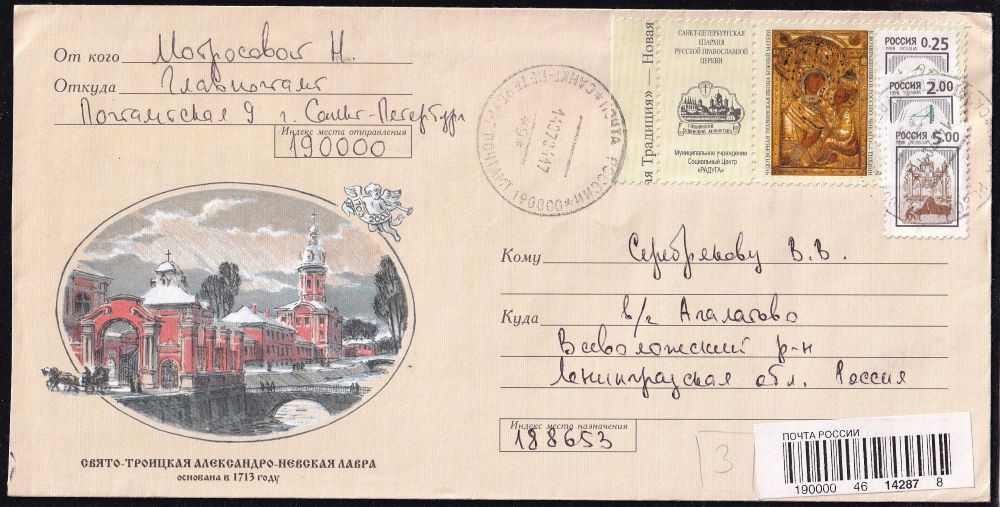 От кого Матросовой Н.
Откуда Главпочтамт
Почтамтская 9 г. Санкт-Петербург
Индекс места отправления
190000
СВЯТО-ТРОИЦКАЯ АЛЕКСАНДРО-НЕВСКАЯ ЛАВРА
основана в 1713 году
ая Традиция» — Новая
САНКТ-ПЕТЕРБУРГСКАЯ
ЕПАРХИЯ
РУССКОЙ ПРАВОСЛАВНОЙ
ЦЕРКВИ
Муниципальное учреждение
Социальный Центр
«РАДУГА»
ЧУДОТВОРНАЯ ТИХВИНСКАЯ ИКОНА БОЖИЕЙ МАТЕРИ
РОССИЯ 0.25
1998 ROSSIJA
РОССИЯ 2.00
1998
РОССИЯ 5.00
1998
ПОЧТА РОССИИ
190000
Кому Серебрякову В.В.
Куда в/г Агалатово
Всеволожский р-н
Ленинградская обл. Россия
Индекс места назначения
188653
3
ПОЧТА РОССИИ
190000 46 14287 8